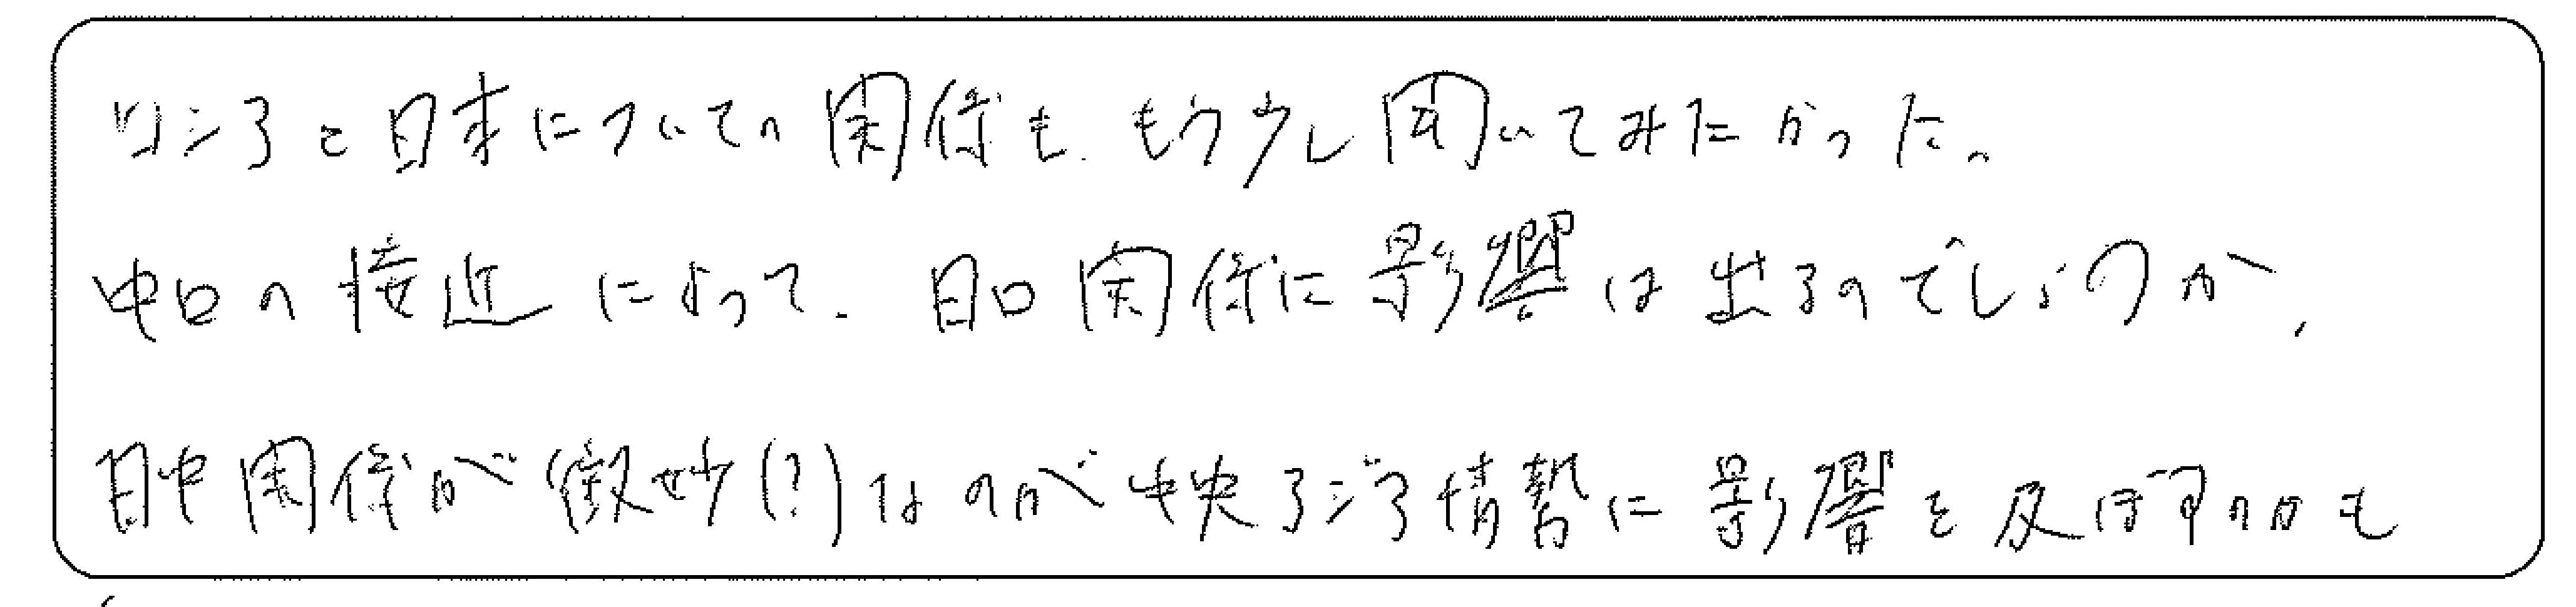 ロシアと日本についての関係も、もう少し聞いてみたかった。
中ロの接近によって、日ロ関係に影響は出るのでしょうか、
日中関係が微妙(?)なのが中央アジア情勢に影響を及ぼすのかも